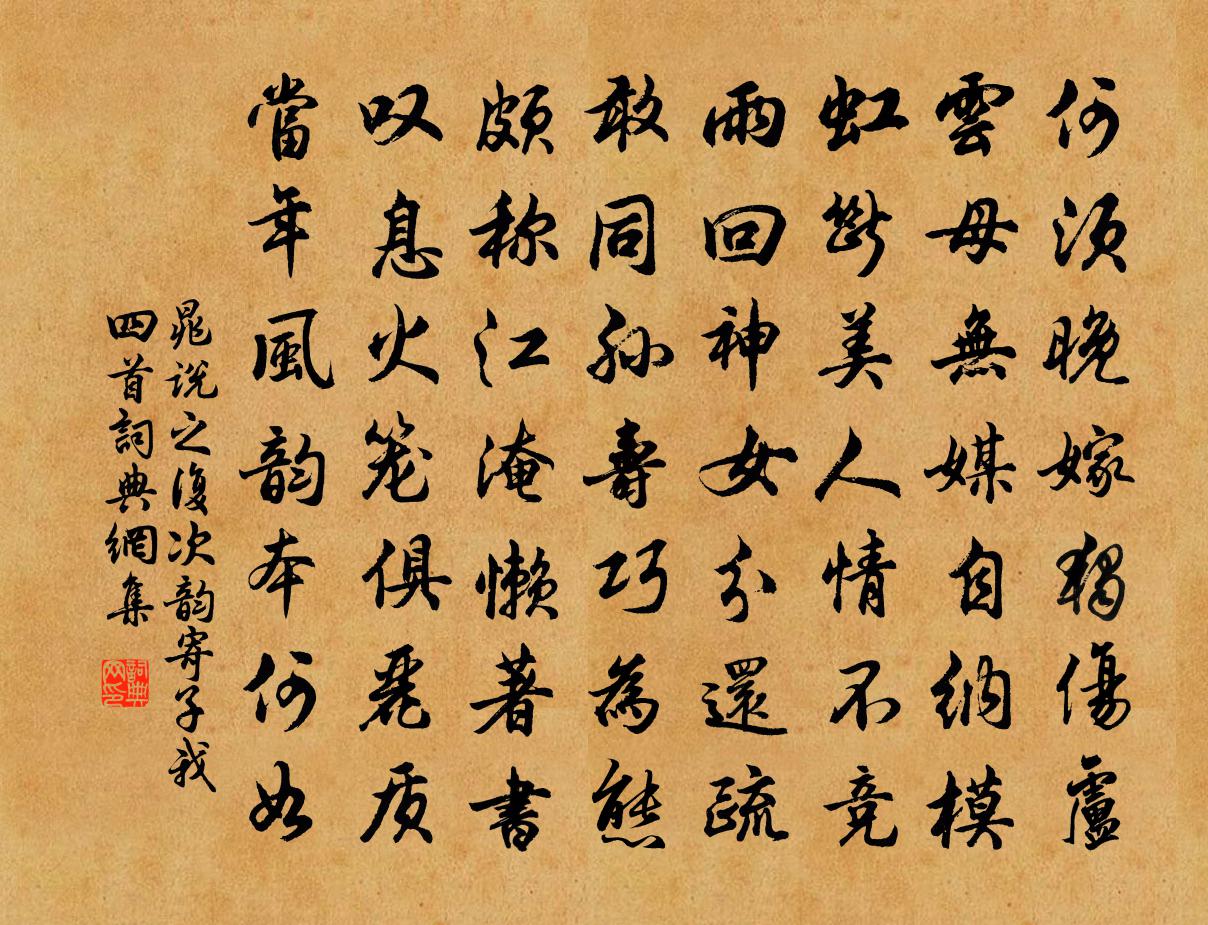 何須晚嫁獨傷盧
雲母無媒自納模
虹斷美人情不競
雨回神女分還疏
敢同孙壽巧為態
頗称江淹懶著書
叹息火笼俱麗质
當年風韵本何如
晁説之復次韵寄子我
四首詞典網集